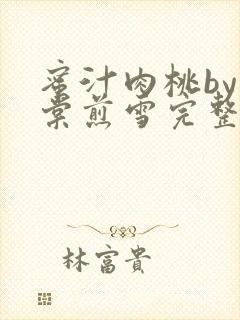 蜜汁肉桃by
棠煎雪完整
林富貴